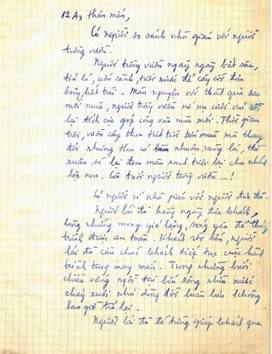 12A3 thân mến,
Có người so sánh nhà giáo với người
trồng vườn.
Người trồng vườn ngày ngày bắt sâu,
tỉa lá, uốn cành, tưới nước để cây cối đơm
bông, kết trái. Mãn nguyện với thành quả sau
mỗi mùa, người trồng vườn nở nụ cười vui để
lại tích cóp công vào mùa mới. Thời gian
trôi, vườn cây theo tiết trời bốn mùa mà thay
đổi nhưng thu có nhuốm vàng lá, thì
xuân sẽ lại đem màu xanh trở lại cho những
lộc non. Còn người trồng vườn...!
Có người ví nhà giáo với người đưa đò.
Người lái đò hàng ngày đưa khách,
lòng những mong gió lặng, sóng yên để
trình được an toàn. Khách rời bến, người
lái đò cầu chúc khách tiếp tục cuộc hành
trình trong may mắn. Trong những buổi
chiều vắng ngồi tại bến sông nhìn nước
chảy xuôi như dòng đời luân lưu không
bao giờ trở lại.
Người lái đò đã từng giúp khách qua